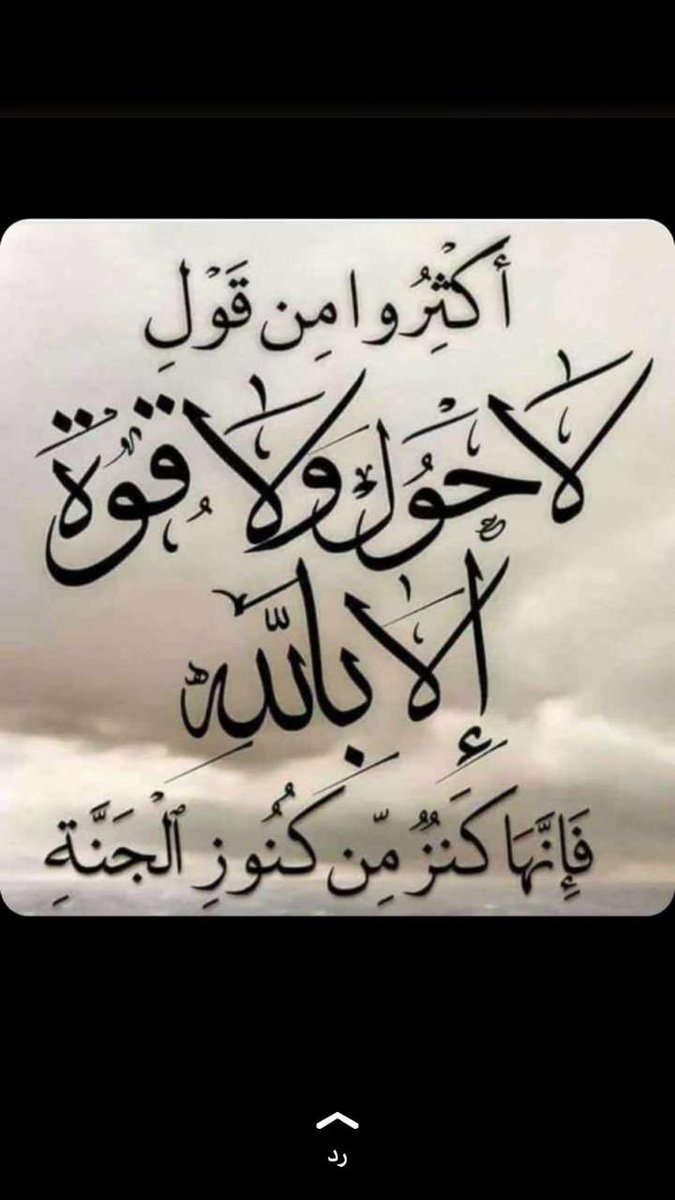 أَكْثِرُوا مِن قَوْلِ
لَا حَوْلَ وَلَا قُوَّةَ
إِلَّا بِاللَّهِ
فَإِنَّهَا كَنْزٌ مِّن كُنُوزِ الْجَنَّةِ
رد